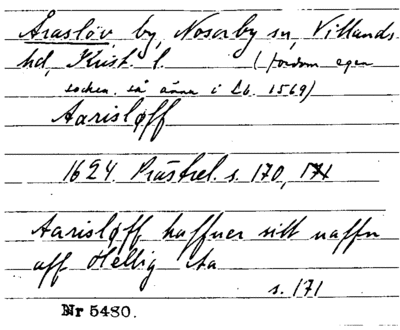 Araslöv, by, Nosaby sn, Villands
hd, Krist. l (fordom egen
socken, så ännu i Lb. 1569)
Aarisløff
1624. Prästrel. s. 170, 171
Aarisløff haffuer sitt naffn
aff Hellig Aa
s. 171
Nr 5480.